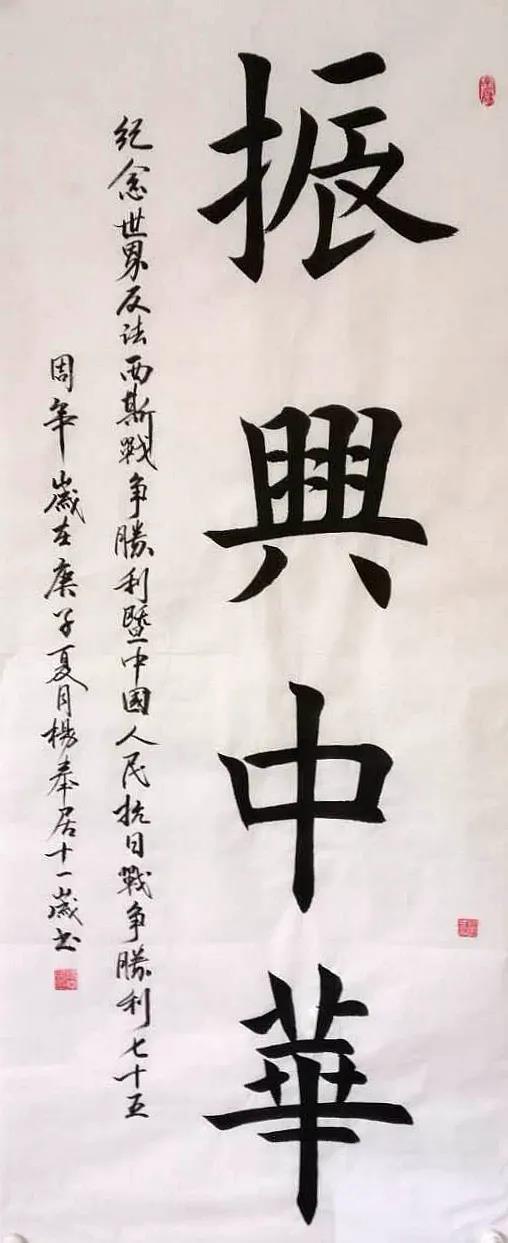 振興中華
紀念世界反法西斯戰争勝利暨中國人民抗日戰争勝利七十五
周年歲在庚子夏月楊奉居十一歲书